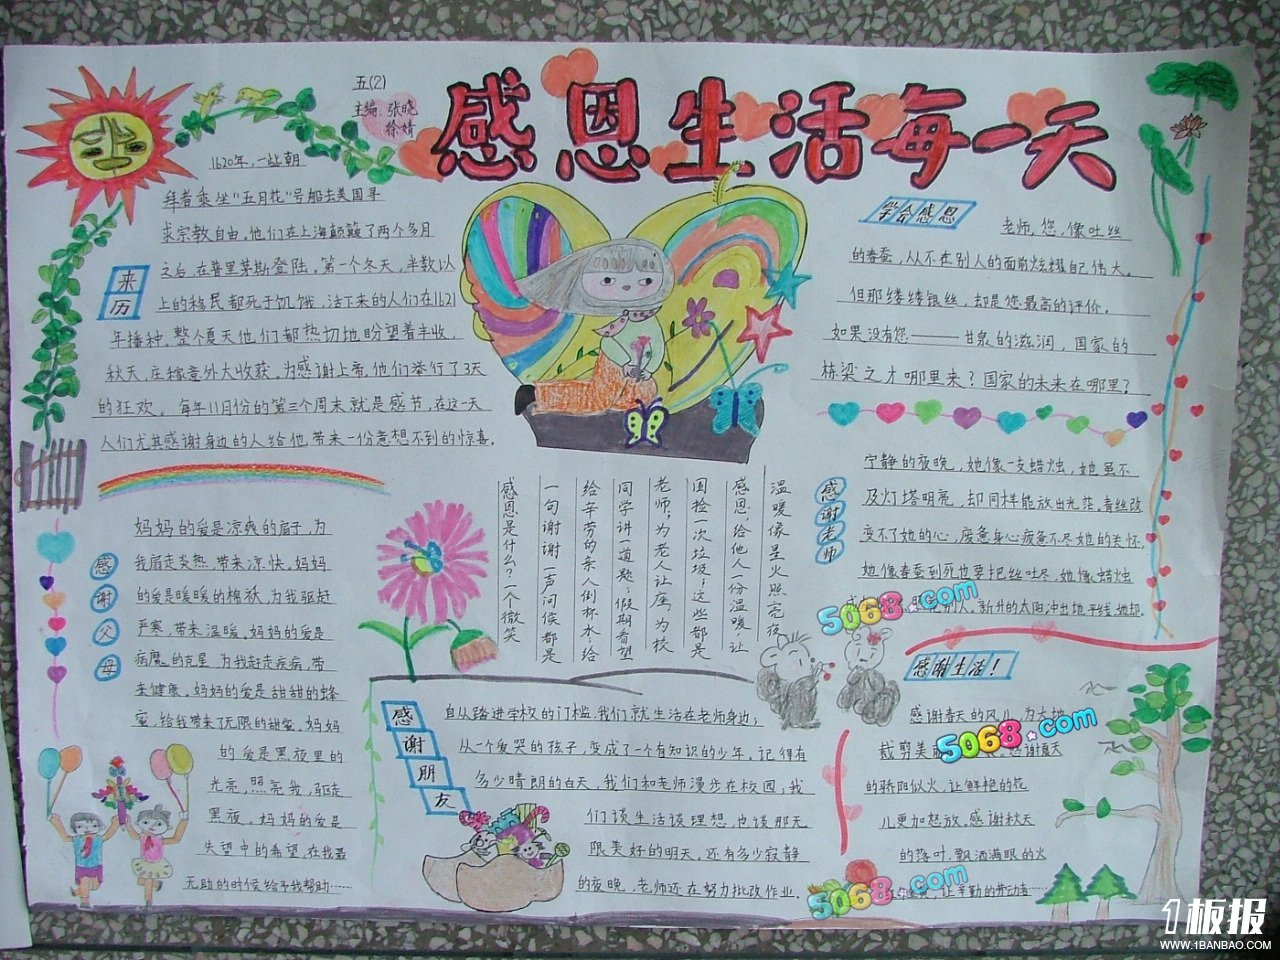 五(2)
主编:张晓
徐婧
感恩生活每一天
来历
1620年,一些朝
拜者乘坐"五月花"号船去美国寻
求宗教自由。他们在上海颠簸了两个多月
之后,在普里茅斯登陆。第一个冬天,半数以
上的移民都死于饥饿,活下来的人们在1621
年播种,整个夏天他们都热切地盼望着丰收,
秋天,庄稼意外大收获。为感谢上帝,他们举行了3天
的狂欢。每年11月份的第三个周末就是感节,在这一天
人们尤其感谢身边的人给他带来一份意想不到的惊喜。
学会感恩
老师,您,像吐丝
的春蚕,从不在别人的面前炫耀自己伟大。
但那缕缕银丝,却是您最高的评价。
如果没有您——甘泉的滋润,国家的
栋梁之才哪里来?国家的未来在哪里?
感谢老师
宁静的夜晚,她像一支蜡烛,她虽不
及灯塔明亮,却同样能放出光茫,青丝改
变不了她的心,疲惫身心疲惫不尽她的关怀,
她像春蚕到死也要把丝吐尽,她像蜡烛
别人。新升的太阳冲出地平线,她却
感谢父母
妈妈的爱是凉我的扇子,为
我扇走炎热,带来凉快。妈妈
的爱是暖暖的棉袄,为我驱赶
严寒,带来温暖。妈妈的爱是
病魔的克星,为我赶走疾病,带
来健康。妈妈的爱是甜甜的蜂
蜜,给我带来了无限的甜蜜。妈妈
的爱是黑夜里的
光亮,照亮我,驱走
黑夜。妈妈的爱是
失望中的希望,在我最
无助的时候给予我帮助……
温暖像星火照亮夜
感恩,给他人一份温暖;让
国捡一次垃圾;这些都是
老师,为老人让座,为校
同学讲一道题;假期看望
给辛劳的亲人倒杯水,给
一句谢谢一声问候都是
感恩是什么?一个微笑
感谢朋友
自从踏进学校的门槛,我们就生活在老师身边;
从一个爱哭的孩子,变成了一个有知识的少年。记得有
多少晴朗的白天,我们和老师漫步在校园,我
们谈生活谈理想,也谈那无
限美好的明天。还有多少寂静
的夜晚,老师还在努力批改作业。
感谢生活!
感谢春天的风儿,为大地
裁剪美丽
感谢夏天
的骄阳似火,让鲜艳的花
儿更加怒放,感谢秋天
的落叶,飘洒满眼的火
让辛勤的劳动者……
5068.com
5068.com
5068.com
1板报
WWW.1BANBAO.COM